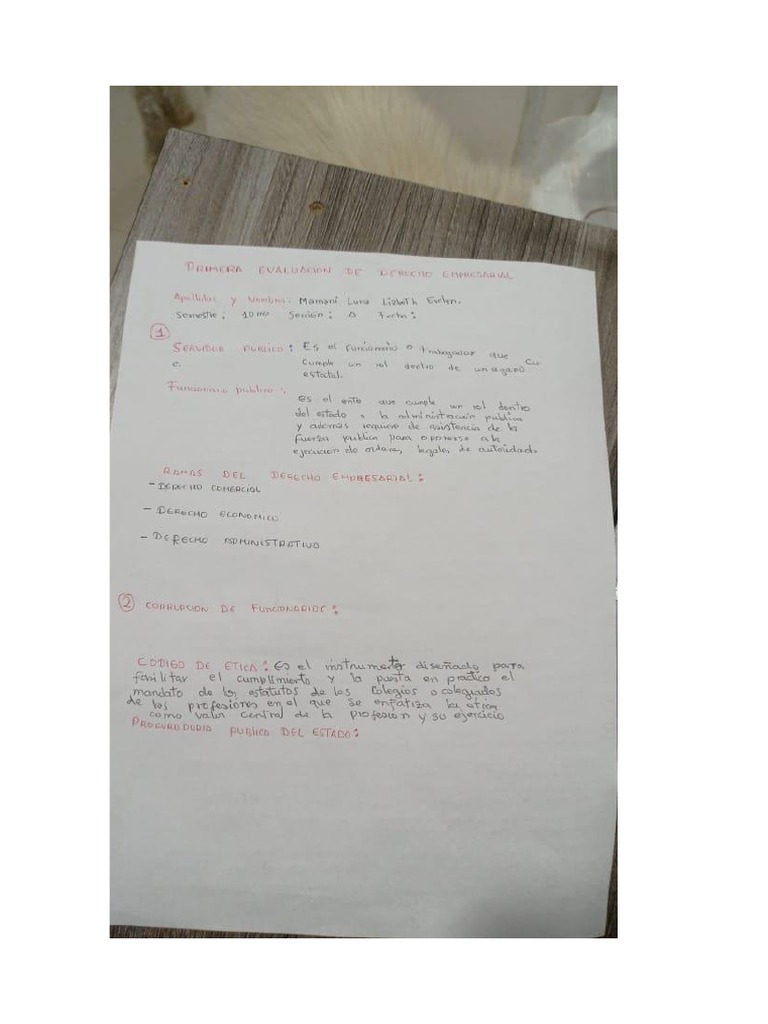 PRIMERA EVALUACION DE DERECHO EMPRESARIAL
Apellidos y Nombres: Mamani Luna Lizbeth Evelen.
Semestre: 10mo Sección: A Fecha:
1
SERVIDOR PUBLICO: Es el funcionario o trabajador que cu
e. cumple un rol dentro de un
estatal.
Funcionario publico:
es el ente que cumple un rol dentro
del estado o la administración publica
y además requiere de asistencia de la
fuerza publica para oponerse a la
ejecucion de ordenes, legales de autoridades
RAMAS DEL DERECHO EMPRESARIAL:
- DERECHO COMERCIAL
- DERECHO ECONOMICO
- DERECHO ADMINISTRATIVO
2 CORRUPCION DE FUNCIONARIOS:
CODIGO DE ETICA: Es el instrumento diseñado para
fasilitar el cumplimiento y la puesta en practica el
mandato de los estatutos de los colegios o colegiados
de los profesiones en el que se enfatiza la etica
como valor central de la profesion y su ejercicio
PROCURADURIA PUBLICA DEL ESTADO: